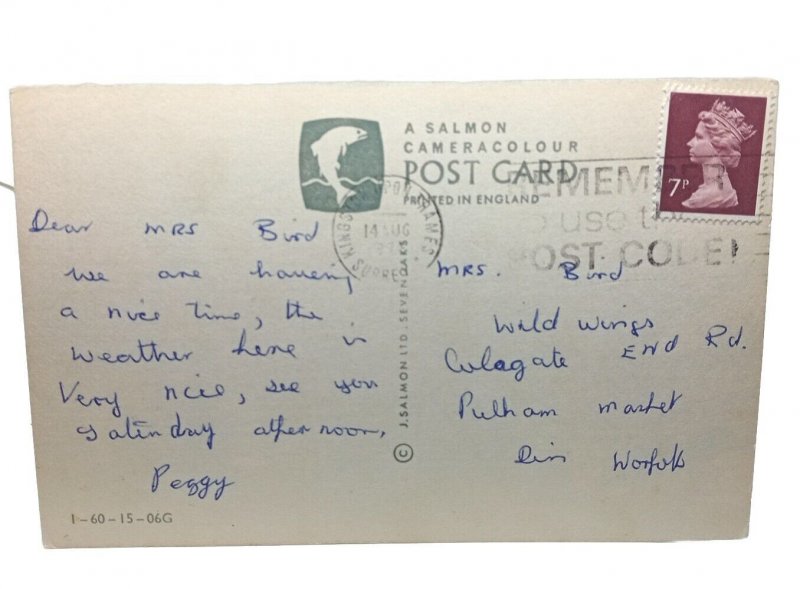 A SALMON
CAMERACOLOUR
POST CARD
PRINTED IN ENGLAND
7P
REMEMBER
to use the
POST CODE!
KINGSTON UPON THAMES
14 AUG
SURREY
Dear MRS Bird
we are haveing
a nice time, the
weather here is
Very nice, see you
Saturday afternoon,
Peggy
MRS. Bird
Wild Wings
Colegate END Rd.
Pulham market
Diss Norfolk
© J. SALMON LTD. SEVENOAKS
1-60-15-06G